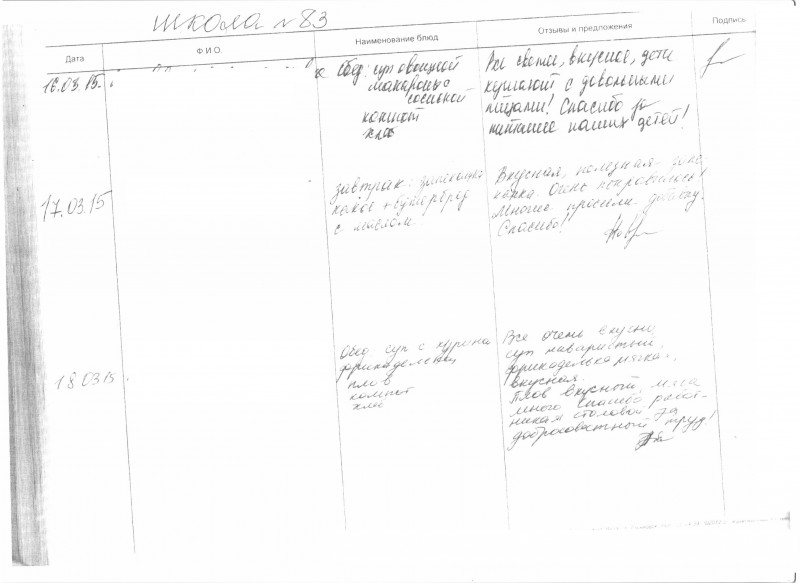 школа №83
Дата
Ф.И.О.
Наименование блюд
Отзывы и предложения
Подпись
16.03.15.
Обед: суп овощной
макароны с
сосиской
компот
хлеб
Все свежее, вкусное, дети
кушают с довольными
лицами! Спасибо за
питание наших детей!
17.03.15
завтрак: запеканка
какао + бутерброд
с маслом
Вкусная, полезная запе
канка. Очень понравилось!
Многие просили добавку.
Спасибо!
18 03 15.
Обед суп с курина
фрикадельками
плов
компот
хлеб
Все очень вкусно,
суп наваристый,
фрикаделька мягкая,
вкусная.
Плов вкусный, мяса
много спасибо работ-
никам столовой за
добросовестный труд!